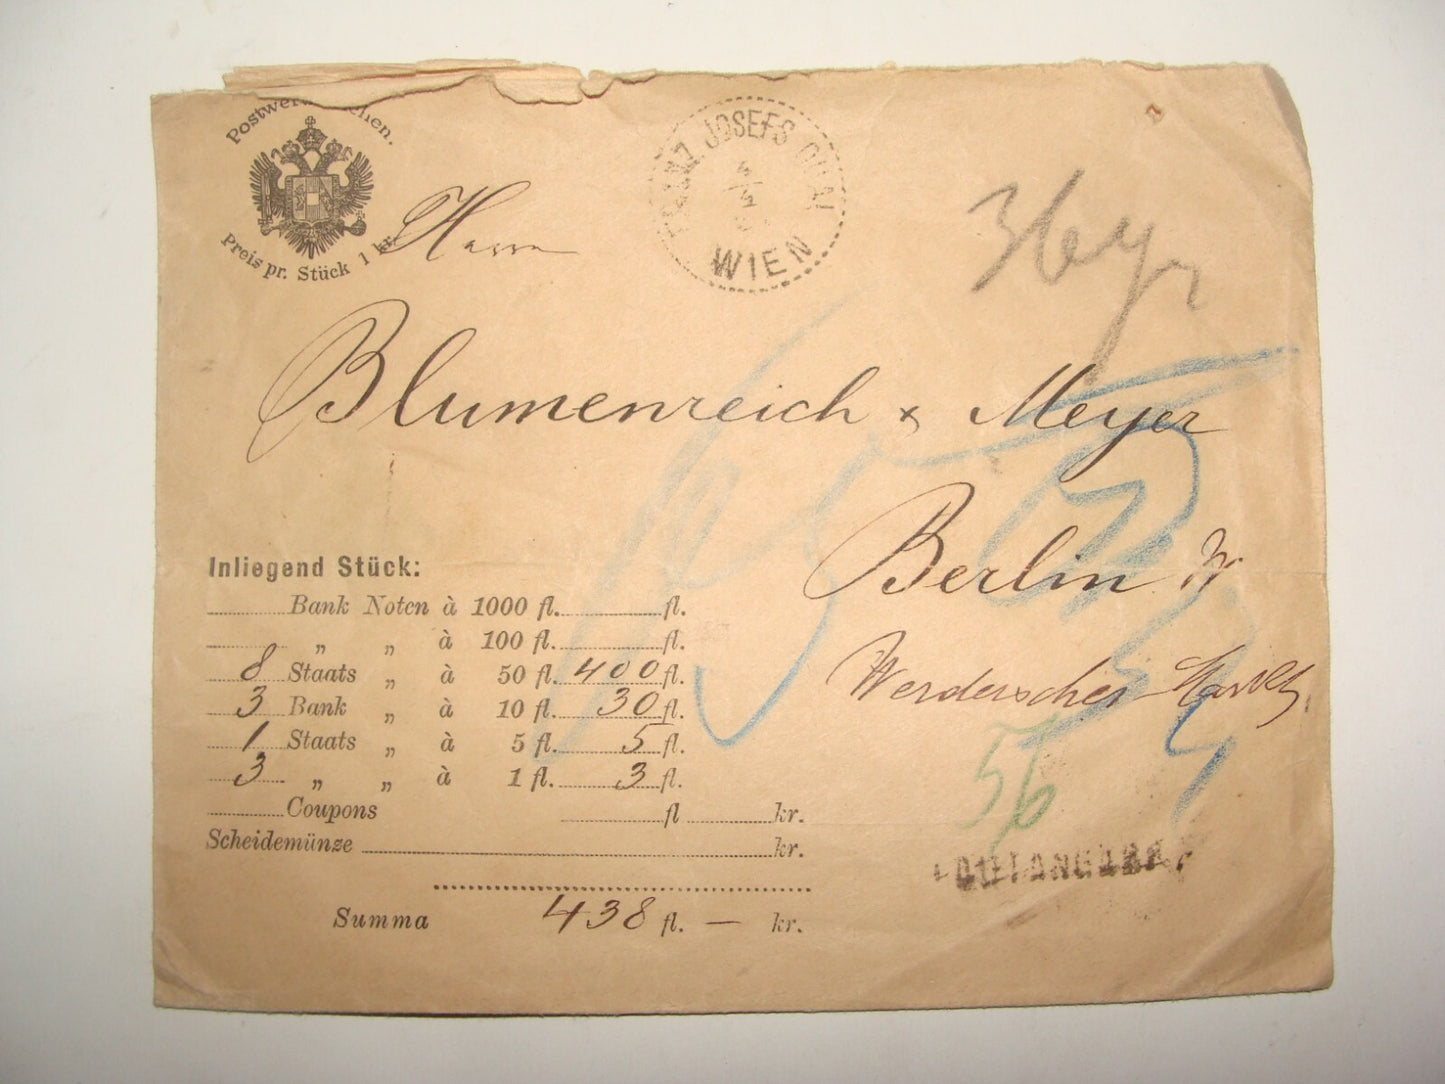 Preis pr. Stück 1 kr.
JOSEFS
WIEN
Herrn
Blumenreich & Meyer
Berlin W
Werderscher Markt
56
Inliegend Stück:
Bank Noten à 1000 fl. fl.
„ „ à 100 fl. fl.
8 Staats „ à 50 fl. 400 fl.
3 Bank „ à 10 fl. 30 fl.
1 Staats „ à 5 fl. 5 fl.
3 „ „ à 1 fl. 3 fl.
Coupons fl kr.
Scheidemünze kr.
Summa 438 fl. — kr.